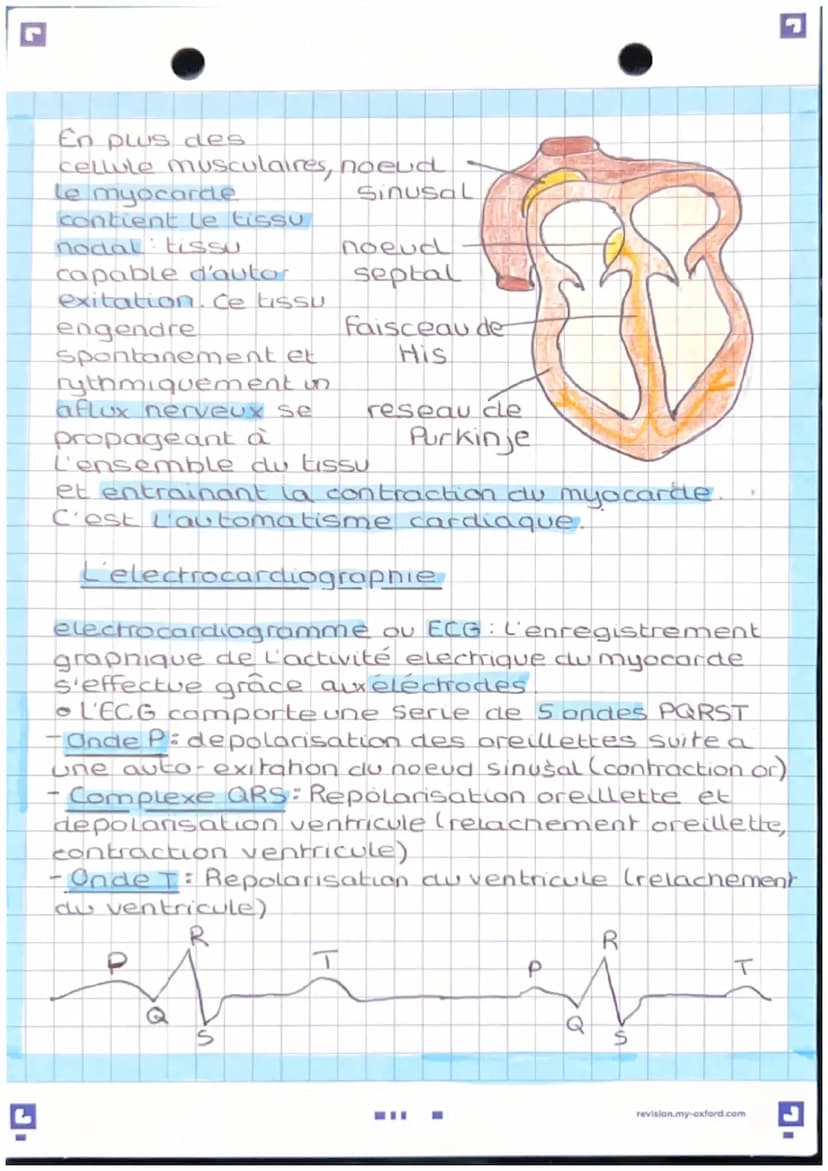 En plus des
cellule musculaires,
le myocarde
contient le tissu
nodal : tissu
capable d'auto
exitation. Ce tissu
engendre
spontanement et
rythmiquement un
aflux nerveux se
propageant à
l'ensemble du tissu
et entrainant la contraction du myocarde.
C'est l'automatisme cardiaque.
noeud
sinusal
noeud
septal
Faisceau de
His
reseau de
Purkinje
L'electrocardiographie
electrocardiogramme ou ECG : L'enregistrement
graphique de l'activité electrique du myocarde
s'effectue grâce aux éléctrodes.
• L'ECG comporte une serie de 5 ondes PQRST
- Onde P : depolarisation des oreillettes suite a
une auto-exitation du noeud sinusal (contraction or)
- Complexe QRS : Repolarisation oreillette et
depolarisation ventricule (relachement oreillette,
contraction ventricule)
- Onde T : Repolarisation du ventricule (relachement
du ventricule)
P
Q
R
S
T
P
Q
R
S
T
revision.my-oxford.com